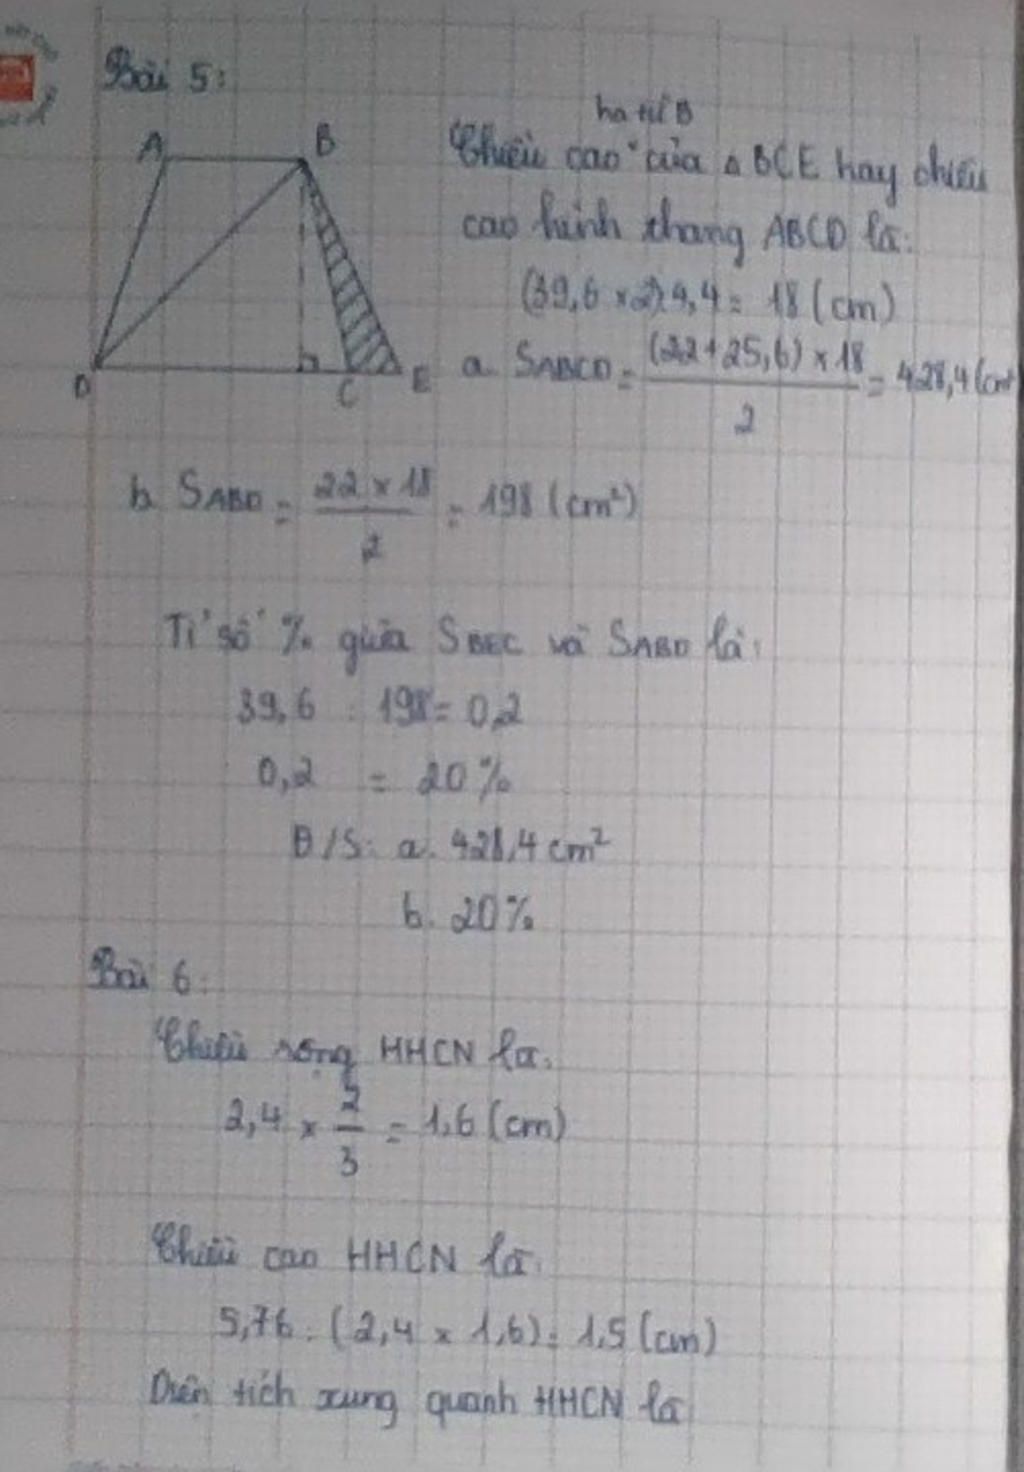 Bài 5:
A B
D C E
hạ từ B
Chiều cao của △ BCE hay chiều
cao hình thang ABCD là:
(39,6 × 2):4,4 = 18 (cm)
a. SABCD = (22+25,6) × 18 / 2 = 428,4 (cm²
b. SABD = 22 × 18 / 2 = 198 (cm²)
Tỉ số % giữa SBEC và SABD là:
39,6 : 198 = 0,2
0,2 = 20%
Đ/S: a. 428,4 cm²
b. 20%
Bài 6:
Chiều rộng HHCN là:
2,4 × 2/3 = 1,6 (cm)
Chiều cao HHCN là:
5,76 : (2,4 × 1,6) = 1,5 (cm)
Diện tích xung quanh HHCN là